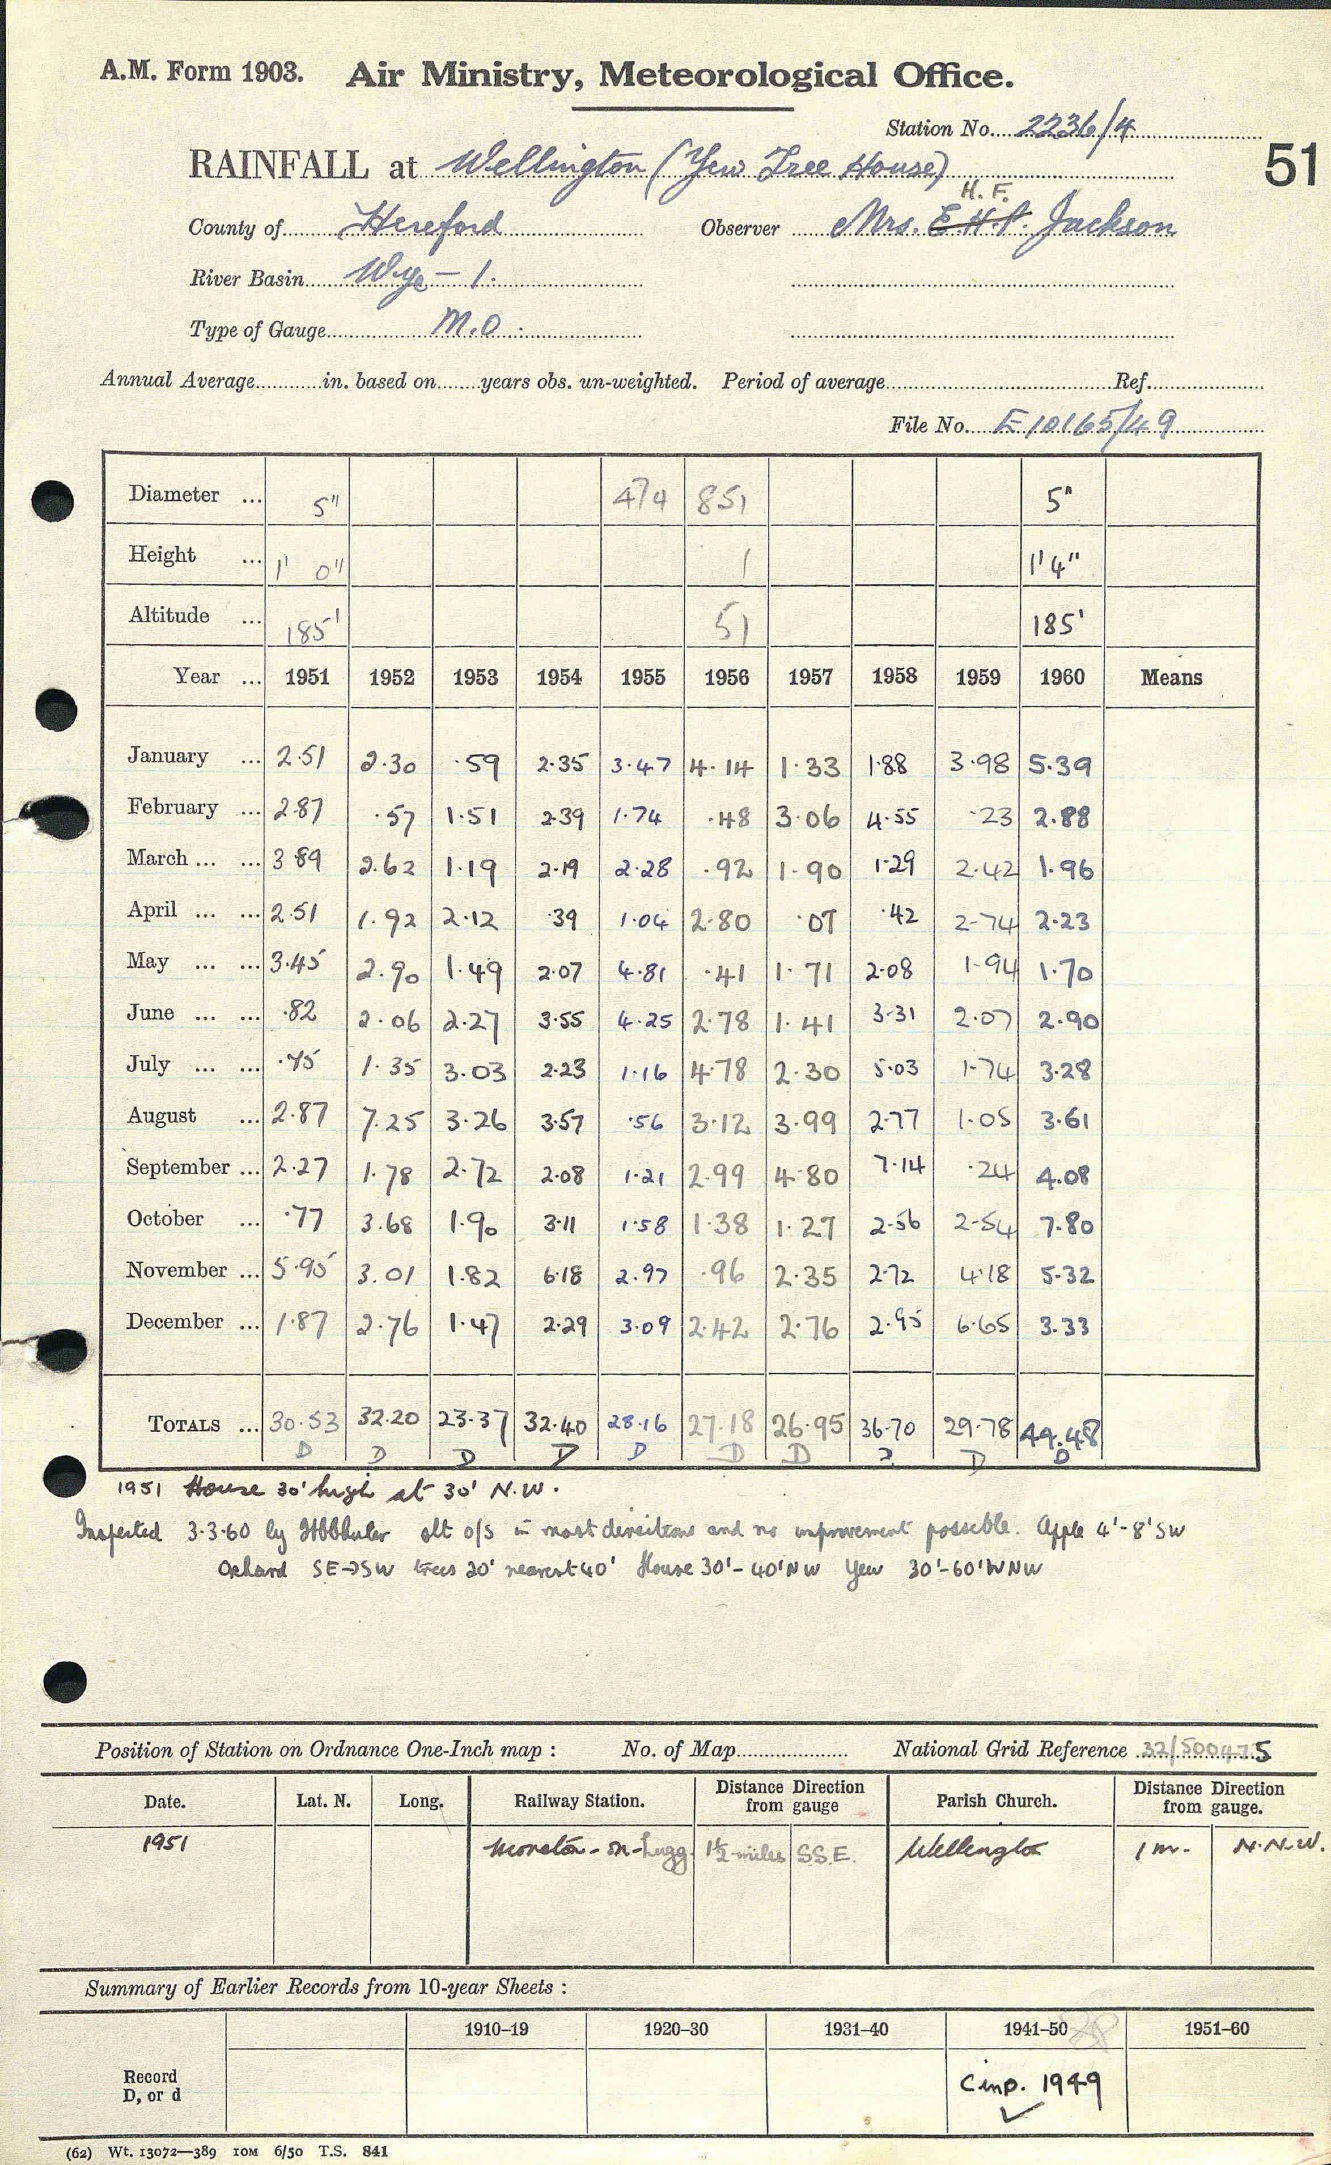 A.M. Form 1903. Air Ministry, Meteorological Office.
Station No. 2236/4
RAINFALL at Wellington (Yew Tree House)
51
H.F.
County of Hereford Observer Mrs. E.H.A. Jackson
River Basin Wye - 1.
Type of Gauge M.O.
Annual Average in. based on years obs. un-weighted. Period of average Ref.
File No. E10165/49
Diameter ... 5" 474 851 5"
Height ... 1' 0" 1 1'4"
Altitude ... 185' 51 185'
Year ... 1951 1952 1953 1954 1955 1956 1957 1958 1959 1960 Means
January ... 2.51 2.30 .59 2.35 3.47 4.14 1.33 1.88 3.98 5.39
February ... 2.87 .57 1.51 2.39 1.74 .48 3.06 4.55 .23 2.88
March ... ... 3.89 2.62 1.19 2.19 2.28 .92 1.90 1.29 2.42 1.96
April ... ... 2.51 1.92 2.12 .39 1.04 2.80 .07 .42 2.74 2.23
May ... ... 3.45 2.90 1.49 2.07 4.81 .41 1.71 2.08 1.94 1.70
June ... ... .82 2.06 2.27 3.55 4.25 2.78 1.41 3.31 2.07 2.90
July ... ... .75 1.35 3.03 2.23 1.16 4.78 2.30 5.03 1.74 3.28
August ... 2.87 7.25 3.26 3.57 .56 3.12 3.99 2.77 1.05 3.61
September ... 2.27 1.78 2.72 2.08 1.21 2.99 4.80 7.14 .24 4.08
October ... .77 3.68 1.90 3.11 1.58 1.38 1.27 2.56 2.54 7.80
November ... 5.95 3.01 1.82 6.18 2.97 .96 2.35 2.72 4.18 5.32
December ... 1.87 2.76 1.47 2.29 3.09 2.42 2.76 2.95 6.65 3.33
TOTALS ... 30.53 32.20 23.37 32.40 28.16 27.18 26.95 36.70 29.78 44.48
D D D D D D D D D D
1951 House 30' high at 30' N.W.
Inspected 3.3.60 by alt o/s in most directions and no improvement possible. Apple 4'-8' SW
Orchard SE→SW trees 20' nearest 40' House 30'-40' NW Yew 30'-60' WNW
Position of Station on Ordnance One-Inch map : No. of Map National Grid Reference 32/500475
Date. Lat. N. Long. Railway Station. Distance Direction from gauge Parish Church. Distance Direction from gauge.
1951 Moreton-on-Lugg. 1½ miles S.S.E. Wellington 1 m. N.N.W.
Summary of Earlier Records from 10-year Sheets :
1910–19 1920–30 1931–40 1941–50 1951–60
Record
D, or d
Cinp. 1949
(62) Wt. 13072—389 10M 6/50 T.S. 841